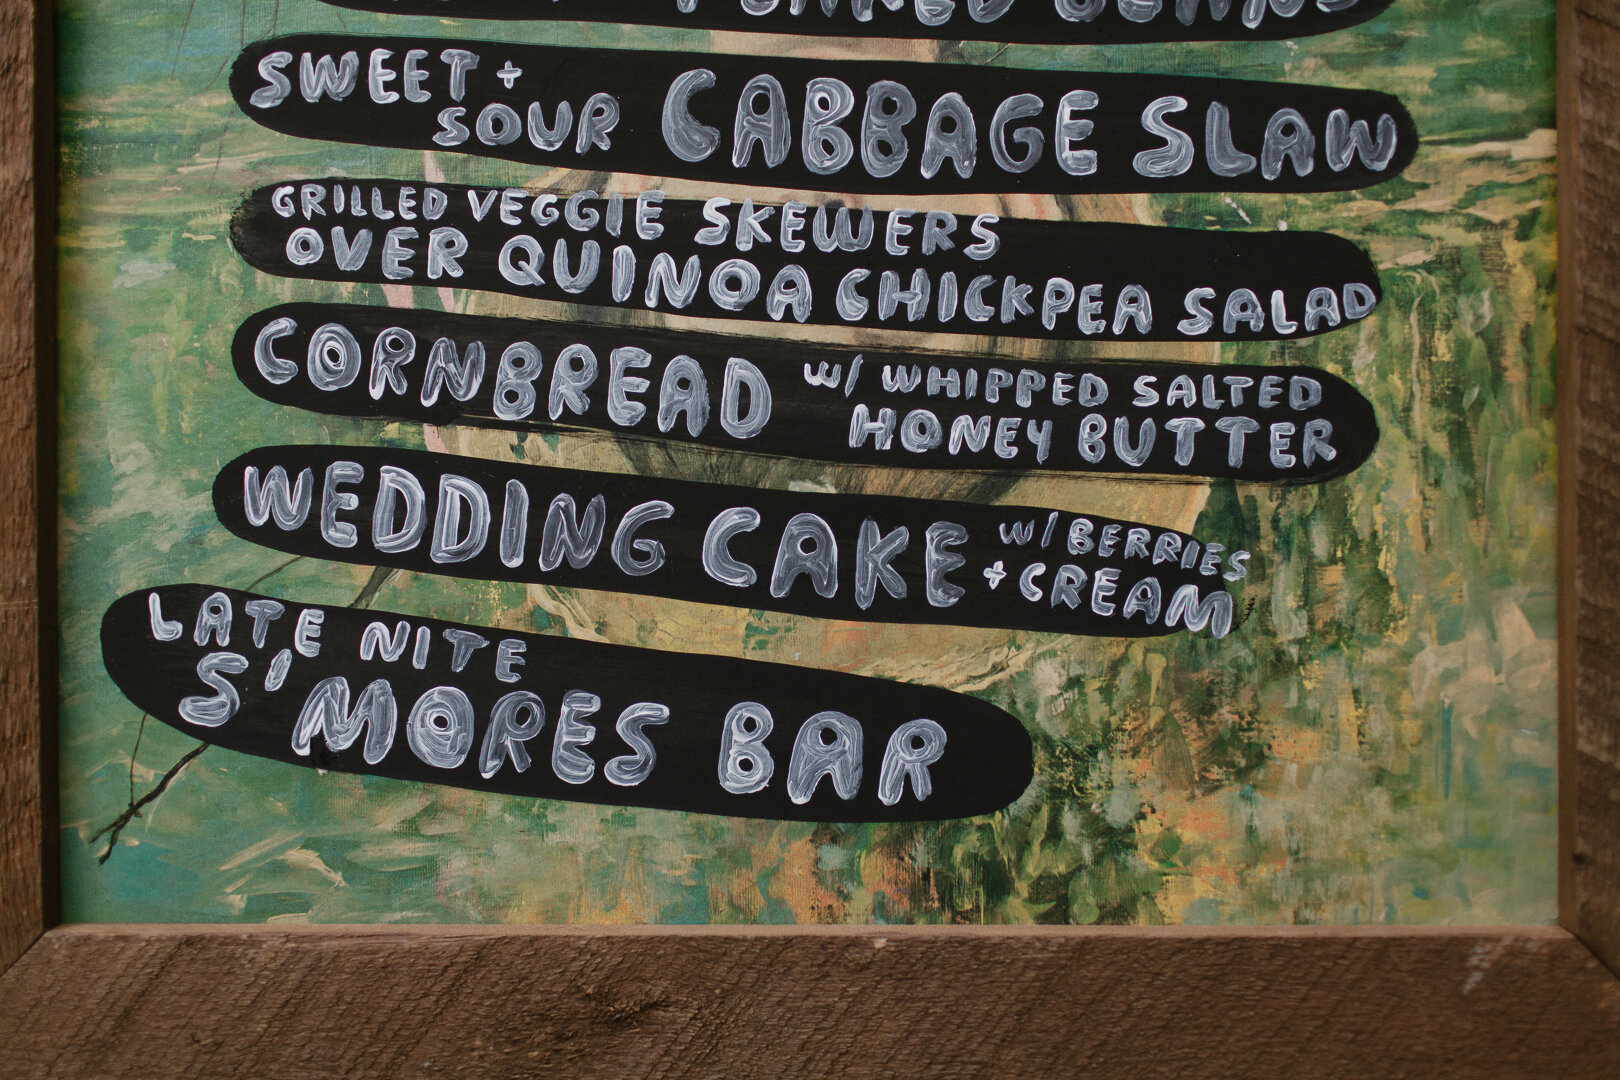 BEANS
SWEET +
SOUR CABBAGE SLAW
GRILLED VEGGIE SKEWERS
OVER QUINOA CHICKPEA SALAD
CORNBREAD w/ WHIPPED SALTED
HONEY BUTTER
WEDDING CAKE w/ BERRIES
+ CREAM
LATE NITE
S'MORES BAR